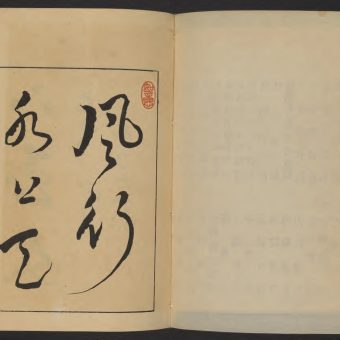 風行
水上天